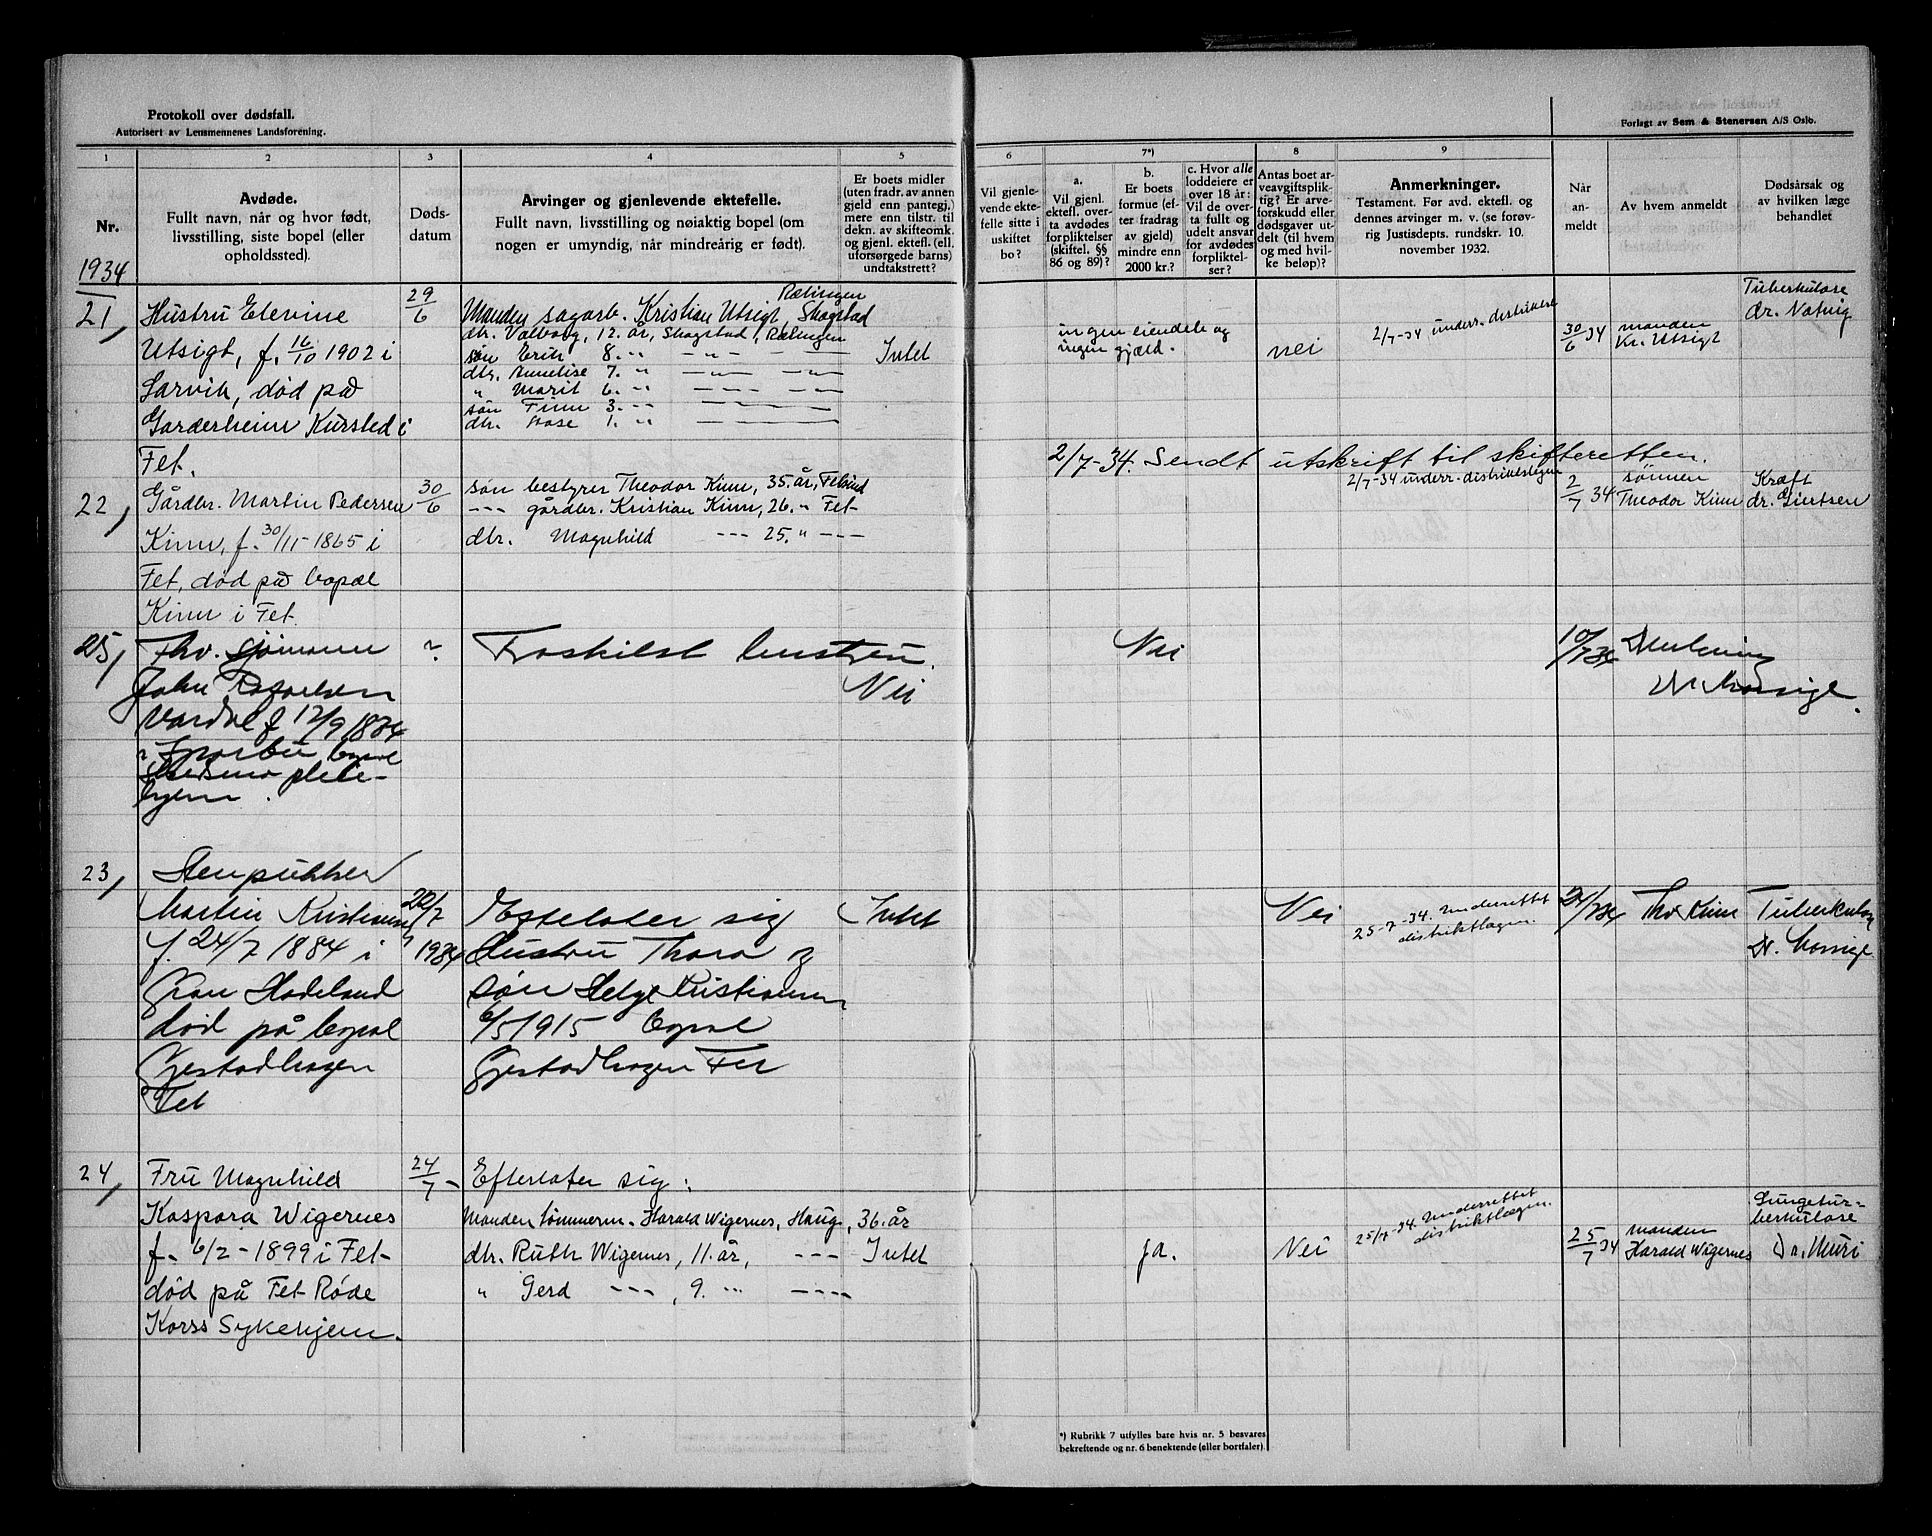 Protokoll over dødsfall.
Autorisert av Lensmennenes Landsforening.
Forlagt av Sem & Stenersen A/S Oslo.
1 2 3 4 5 6 7*) 8 9
Nr.
1934
Avdøde.
Fullt navn, når og hvor født,
livsstilling, siste bopel (eller
opholdssted).
Døds-
datum
Arvinger og gjenlevende ektefelle.
Fullt navn, livsstilling og nøiaktig bopel (om
nogen er umyndig, når mindreårig er født).
Er boets midler
(uten fradr. av annen
gjeld enn pantegj.)
mere enn tilstr. til
dekn. av skifteomk.
og gjenl. ektef. (ell.
uforsørgede barns)
undtakstrett?
Vil gjenle-
vende ekte-
felle sitte i
uskiftet
bo?
a.
Vil gjenl.
ektef. over-
ta avdødes
forpliktelser
(skiftel. §§
86 og 89)?
b.
Er boets
formue (ef-
ter fradrag
av gjeld)
mindre enn
2000 kr.?
c. Hvor alle
loddeiere er
over 18 år:
Vil de over-
ta fullt og
udelt ansvar
for avdødes
forpliktel-
ser?
Antas boet ar-
veavgiftsplik-
tig? Er arve-
forskudd eller
dødsgaver ut-
delt (til hvem
og med hvil-
ke beløp)?
Anmerkninger.
Testament. Før avd. ektefl. og
dennes arvinger m. v. (se forøv-
rig Justisdepts. rundskr. 10.
november 1932.
Når
an-
meldt
Av hvem anmeldt
Dødsårsak og
av hvilken læge
behandlet
21,
Hustru Elevine
Utsigt, f. 16/10 1902 i
Larvik, død på
Garderheim Kursted i
Fet.
29/6
Rælingen
Manden sagarb. Kristian Utsigt, Skogstad
dtr. Valborg, 12. år, Skogstad, Rælingen
søn Erik 8. "
dtr. Annelise 7. "
" Marit 6. "
søn Finn 3. "
dtr. Aase 1. "
Intet
ingen eiendele og
ingen gjæld.
nei
2/7-34 underr. distriktsl
30/6 34
manden
Kr. Utsigt
Tuberkulose
dr. Natvig
2/7-34. Sendt utskrift til skifteretten.
22,
Gårdbr. Martin Pedersen
Kinn, f. 30/11-1865 i
Fet, død på bopæl
Kinn i Fet.
30/6
søn bestyrer Theodor Kinn, 35. år, Fetsund
--- gårdbr. Kristian Kinn, 26. " Fet-
dtr. Magnhild --- 25. " ---
2/7-34 underr. distriktslægen
2/7 34
sønnen
Theodor Kinn
Kræft
dr. Giertsen
25,
Fhv. Sjømann
John
f 12/9 1874
i Sparbu bopæl
pleie-
hjem.
?
Fraskilt hustru.
Nei
Nei
10/7 34
23,
Stenpukker
Martin Kristiansen
f. 24/7 1884 i
Gran Hadeland
død på bopæl
Gjestadhagen
Fet
20/7
1934
Efterlater sig
Hustru Thora og
søn Helge Kristiansen
6/5 1915 bopæl
Gjestadhagen Fet
Intet
Nei
25-7-34. Underrettet
distriktlægen.
Thv Kinn
Tuberkulose
Dr. Mossige
24,
Fru Magnhild
Kaspara Wigernes
f. 6/2-1899 i Fet-
død på Fet Røde
Korss Sykehjem.
24/7 -
Efterlater sig:
Manden tømmerm. Harald Wigernes, Haug, 36. år
dtr. Ruth Wigernes, 11. år, ---
" Gerd ---, 9. " ----
Intet
ja.
Nei
25/7-34. Underrettet
distriktlægen.
25/7 34
manden
Harald Wigernes
Lungetur-
berkulose
Dr. Muri
*) Rubrikk 7 utfylles bare hvis nr. 5 besvares
bekreftende og nr. 6 benektende (eller bortfaler).